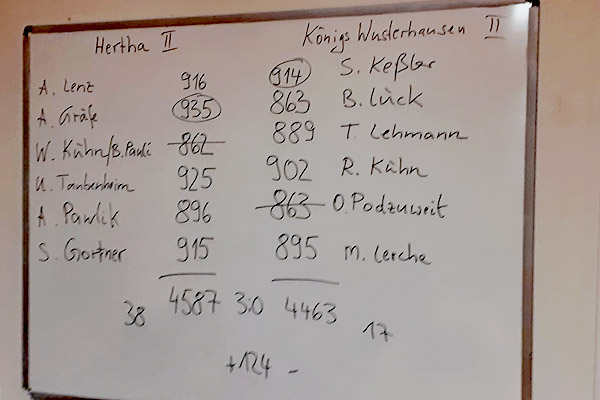 Hertha II Königs Wusterhausen II
A. Lenz 916 914 S. Keßler
A. Gräfe 935 863 B. Lück
W. Kühn/B. Pauli 862 889 T. Lehmann
U. Tautenhaim 925 902 R. Kühn
A. Pawlik 896 863 O. Podzuweit
S. Gortner 915 895 M. Lerche
38 4587 3:0 4463 17
+124 -